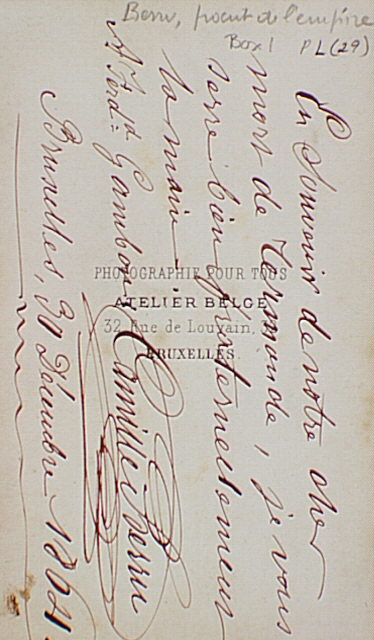 Berru, proscrit de l'empire
Box 1 PL (29)
En Souvenir de notre cher
mort de Termonde, je vous
serre bien fraternellement
la main
A Ferd. Gambon
Camille Berru
Bruxelles, 30 Décembre 1864
PHOTOGRAPHIE POUR TOUS
ATELIER BELGE
32 Rue de Louvain, 32
BRUXELLES.